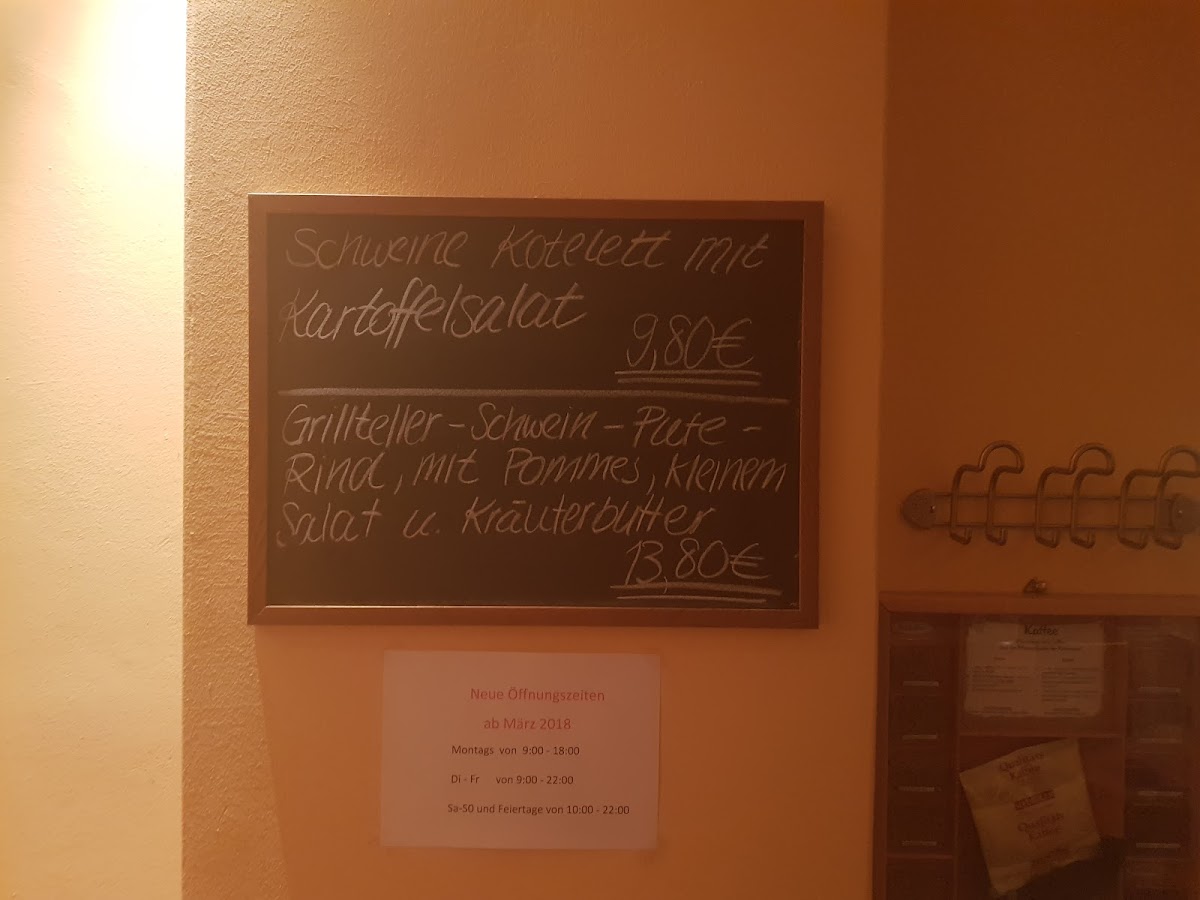 Schweine Kotelett mit
Kartoffelsalat
9,80€
Grillteller - Schwein - Pute -
Rind, mit Pommes, kleinem
Salat u. Kräuterbutter
13,80€
Neue Öffnungszeiten
ab März 2018
Montags von 9:00 - 18:00
Di - Fr von 9:00 - 22:00
Sa-50 und Feiertage von 10:00 - 22:00
Kaffee
Qualitäts
Kaffee
Qualitäts
Kaffee